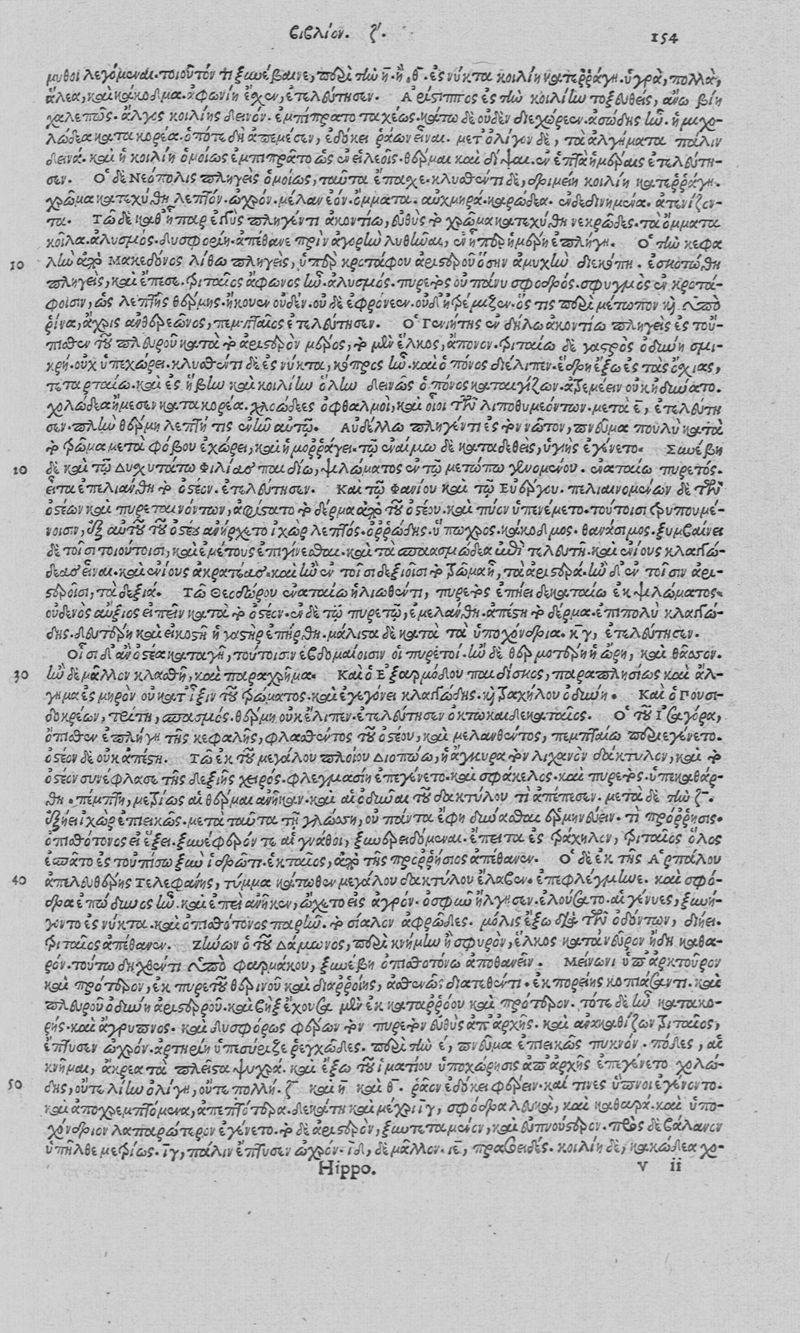 Βιβλίον. ζ΄. 154
μυθοι λεγόμεναι. τοιοῦτόν τι ξυνέβαινε, περὶ τὴν η̄. ἢ, θ̄. ἐς νύκτα κοιλίη κατερράγη. ὑγρὰ, πολλὰ,
ἄλεα, καὶ κάκοδμα. ἀφωνίη ἔχεν, ἐτελεύτησεν. Ἀρίστιππος ἐς τὴν κοιλίην τοξευθεὶς, ἄνω βίῃ
χαλεπῶς. ἄλγος κοιλίης δεινόν. ἐμπίπρατο ταχέως. κάτω δὲ οὐδὲν διεχώρεεν. ἀσώδης ἦν. ἤμεε χο-
λώδεα κατακορέα. ὁπότε δὴ ἀπεμέσεν, ἐδόκει ῥάων εἶναι. μετ' ὀλίγον δὲ, τὰ ἀλγήματα πάλιν
δεινά. καὶ ἡ κοιλίη ὁμοίως ἐμπίπρατο ὡς ἐν εἰλεοῖς. θέρμαι καὶ δίψαι. ἐν ἑπτὰ ἡμέραις ἐτελεύτη-
σεν. Ὁ δὲ Νεόπολις πληγεὶς ὁμοίως, ταῦτα ἔπασχε. κλυσθέντι δὲ, δριμεῖη κοιλίη κατερράγη.
χρῶμα κατεχύθη λεπτὸν. ὠχρὸν. μέλαν ἐόν. ὄμματα. αὐχμηρὰ. καρώδεα. ἐνδεδινημένα. ἀτενίζον-
τα. Τῷ δὲ καθ' ἧπαρ εὐθὺς πληγέντι ἀκοντίῳ, εὐθὺς τὸ χρῶμα κατεχύθη νεκρῶδες. τὰ ὄμματα
κοῖλα. ἀλυσμός. δυσφορίη. ἀπέθανε πρὶν ἀγορὴν λυθῆναι, ἐν ᾗπερ ἡμέρῃ ἐπλήγη. Ὁ τὴν κεφα
10 λὴν ὑπὸ Μακεδόνος λίθῳ πληγεὶς, ὑπὲρ κροτάφου ἀριστεροῦ ὅσην ἀμυχὴν διεκόπη. ἐσκοτώθη
πληγεὶς, καὶ ἔπεσε. τριταῖος ἄφωνος ἦν. ἀλυσμός. πυρετὸς οὐ πάνυ σφοδρός. σφυγμὸς ἐν κροτά-
φοισιν, ὡς λεπτῆς θέρμης. ἤκουεν οὐδέν. οὐδὲ ἐφρόνεεν. οὐδ' ἠρέμιζεν. ὅς τις περὶ μέτωπον καὶ ὑπὸ
ῥῖνα, ἄχρις ἀνθερεῶνος, πεμπταῖος ἐτελεύτησεν. Ὁ Γονιήτης ἐν δήλῳ ἀκοντίῳ πληγεὶς ἐς τοὔ-
πισθεν τοῦ πλευροῦ κατὰ τὸ ἀριστερὸν μέρος, τὸ μὲν ἕλκος, ἄπονον. τριταίῳ δὲ γαστρὸς ὀδύνη σμι-
κρή. οὐχ ὑπεχώρει. κλυσθέντι δὲ ἐς νύκτα, κόπρος ἦν. καὶ ὁ πόνος διέλιπεν. ἕδρη ἔξω ἐς τὰς ὄρχιας,
τεταρταίῳ. καὶ ἐς ἥβην καὶ κοιλίην ὅλην δεινῶς ὁ πόνος καταιγίζων. ἀτρεμέειν οὐκ ἠδύνατο.
χολώδεα ἤμεσεν κατακορέα. χλοώδεες ὀφθαλμοὶ, καὶ οἷοι τῶν λιποθυμεόντων. μετὰ ε̄, ἐτελεύτη
σεν. πλὴν θέρμη λεπτή τις ἐνῆν αὐτῷ. Αὐδέλλῳ πληγέντι ἐς τὸν νῶτον, πνεῦμα πουλὺ κατὰ
τὸ τρῶμα μετὰ ψόφου ἐχώρει, καὶ ᾑμορράγει. τῷ ἐναίμῳ δὲ καταδεθεὶς, ὑγιὴς ἐγένετο. Συνέβη
20 δὲ καὶ τῷ Δυσχυτάτῳ Φιλίας παιδίῳ, ψιλώματος ἐν τῷ μετώπῳ γενομένου. ἐναταίῳ πυρετός.
εἶτα ἐπελιάνθη τὸ ὀστέον. ἐτελεύτησεν. Καὶ τῷ Φανίου καὶ τῷ Εὐέργου. πελιαινομένων δὲ τῶν
ὀστέων καὶ πυρεταινόντων, ἀφίσταται τὸ δέρμα ἀπὸ τοῦ ὀστέου. καὶ πύον ὑπεγένετο. τούτοισι τρυπωμέ-
νοισιν, ἐξ αὐτοῦ τοῦ ὀστέου ἀνήρχετο ἰχὼρ λεπτός. ὀρρώδης. ὕπωχρος. κάκοδμος. θανάσιμος. ξυμβαίνει
δὲ τοῖσι τοιούτοισι, καὶ ἐμέτους ἐπιγίνεσθαι. καὶ τὰ σπασμώδεα ἐπὶ τελευτῇ. καὶ ἐνίους κλαγγώ-
δεας εἶναι. καὶ ἐνίους ἀκρατέας. καὶ ἢν ἐν τοῖσι δεξιοῖσι τὸ τρῶμα ᾖ, τὰ ἀριστερά. ἢν δ' ἐν τοῖσιν ἀρι-
στεροῖσι, τὰ δεξιά. Τῷ Θεοδώρου ἐναταίῳ ἡλιωθέντι, πυρετὸς ἐπῄει δεκαταίῳ ἐκ ψιλώματος
οὐδενὸς ἀξίος εἰπεῖν κατὰ τὸ ὀστέον. ἐν δὲ τῷ πυρετῷ, ἐμελάνθη. ἀπέστη τὸ δέρμα. ἐπιπολὺ κλαγγώ-
δης. δευτέρῃ καὶ εἰκοστῇ ἡ γαστὴρ ἐπήρθη. μάλιστα δὲ κατὰ τὰ ὑποχόνδρια. κ̄γ, ἐτελεύτησεν.
Οἷσι δ' ἂν ὀστέα καταγῇ, τούτοισιν ἑβδομαίοισιν οἱ πυρετοί. ἢν δὲ θερμοτέρη ᾖ ὥρη, καὶ θᾶσσον.
30 ἢν δὲ μᾶλλον κλασθῇ, καὶ παραχρῆμα. Καὶ ὁ Ἐξαρμόδου παιδίσκος, παραπλησίως καὶ ἄλ-
γημα ἐς μηρὸν οὐ κατ' ἴξιν τοῦ τρώματος. καὶ ἐγεγόνει κλαγγώδης. καὶ τραχήλου ὀδύνη. Καὶ ὁ Γουσι-
δοκρέων, τρίτῃ, σπασμός. θέρμη οὐκ ἔλιπεν. ἐτελεύτησεν ὀκτωκαιδεκαταῖος. Ὁ τοῦ Ἰσαγόρα,
ὄπισθεν ἐπλήγη τῆς κεφαλῆς, φλασθέντος τοῦ ὀστέου, καὶ μελανθέντος, πεμπταίῳ περιεγένετο.
ὀστέον δὲ οὐκ ἀπέστη. Τῷ ἐκ τοῦ μεγάλου πλοίου Διοπώῳ, ἡ ἄγκυρα τὸν λιχανὸν δάκτυλον, καὶ τὸ
ὀστέον συνέφλασε τῆς δεξιῆς χειρός. φλεγμασίη ἐπεγένετο. καὶ σφάκελος. καὶ πυρετὸς. ὑπεκαθάρ-
θη. πέμπτῃ, μετρίως αἱ θέρμαι ἀνῆκαν. καὶ αἱ ὀδύναι τοῦ δακτύλου τι ἀπέπεσεν. μετὰ δὲ τὴν ζ̄.
ἐξῄει ἰχὼρ ἐπιεικῶς. μετὰ ταῦτα τῇ γλώσσῃ, οὐ πάντα ἔφη δύνασθαι ἑρμηνεύειν. τι πρόρρησις.
ὀπισθότονος εἰ ἥξει. ξυνέφερόν τε αἱ γνάθοι, ξυνερειδόμεναι. ἔπειτα ἐς τράχηλον, τριταῖος ὅλος
ἐσπᾶτο ἐς τοὐπίσω ξὺν ἱδρῶτι. ἑκταῖος, ἀπὸ τῆς προρρήσιος ἀπέθανεν. Ὁ δὲ ἐκ τῆς Ἁρπάλου
40 ἀπελευθέρης Τελεφάνης, τύμμα κάτωθεν μεγάλου δακτύλου ἔλαβεν. ἐπεφλέγμηνε. καὶ σφό-
δρα ἐπώδυνος ἦν. καὶ ἐπεὶ ἀνῆκεν, ᾤχετο εἰς ἀγρόν. ὀσφῦν ἤλγησεν. ἐλούσατο. αἱ γένυες, ξυνή-
γοντο ἐς νύκτα. καὶ ὀπισθότονος παρῆν. τὸ σίαλον ἀφρῶδες. μόλις ἔξω διὰ τῶν ὀδόντων, διῄει.
τριταῖος ἀπέθανεν. Ζήνων ὁ τοῦ Δάμωνος, περὶ κνήμην ἢ σφυρὸν, ἕλκος κατὰ νεῦρον ἤδη καθα-
ρόν. τούτῳ δηχθέντι ὑπὸ φαρμάκου, ξυνέβη ὀπισθοτόνῳ ἀποθανεῖν. Μένωνι ὑπ' ἀρκτοῦρον
καὶ πρότερον, ἐκ πυρετοῦ θερινοῦ καὶ διαρροίης, ἀσθενῶς διατεθέντι. ἐκ πορείης κοπιῶντι. καὶ
πλευροῦ ὀδύνη ἀριστεροῦ. καὶ βὴξ ἔχουσα μὲν ἐκ καταρρόου καὶ πρότερον. τότε δὲ ἦν κατακο-
ρής. καὶ ἄγρυπνος. καὶ δυσφόρως φέρων τὸν πυρετὸν εὐθὺς ἀπ' ἀρχῆς. καὶ ἀνακαθίζων τριταῖος,
ἔπτυσεν ὠχρόν. ἀρτηρίη ὑπεσύριζε ῥεγχῶδες. περὶ τὴν ε̄, πνεῦμα ἐπιεικῶς πυκνόν. πόδες, αἱ
κνῆμαι, ἄκρεα τὰ πλεῖστα ψυχρά. καὶ ἔξω τοῦ ἱματίου ὑποχώρησις ἀπ' ἀρχῆς ἐπεγένετο χολώ-
50 δης, οὔτε λίην ὀλίγη, οὔτε πολλή. ζ̄ καὶ η̄ καὶ θ̄. ῥᾷον ἐδόκει φέρειν. καί τινες ὕπνοι ἐγένοντο.
καὶ ἀποχρεμπτόμενα, ἀπεπτότερα. δεκάτῃ καὶ μέχρι ῑγ, σφόδρα λευκὰ, καὶ καθαρά. καὶ ὑπο-
χόνδριον λαπαρώτερον ἐγένετο. τὸ δὲ ἀριστερὸν, ξυντεταμένον, καὶ εὐπνούστερον. πρὸς δὲ βάλανον
ὑπῆλθε μετρίως. ῑγ, πάλιν ἔπτυσεν ὠχρόν. ῑδ, δὲ μᾶλλον. ῑε, πρασοειδές. κοιλίη δὲ, κακώδεα χο-
Hippo. V ii